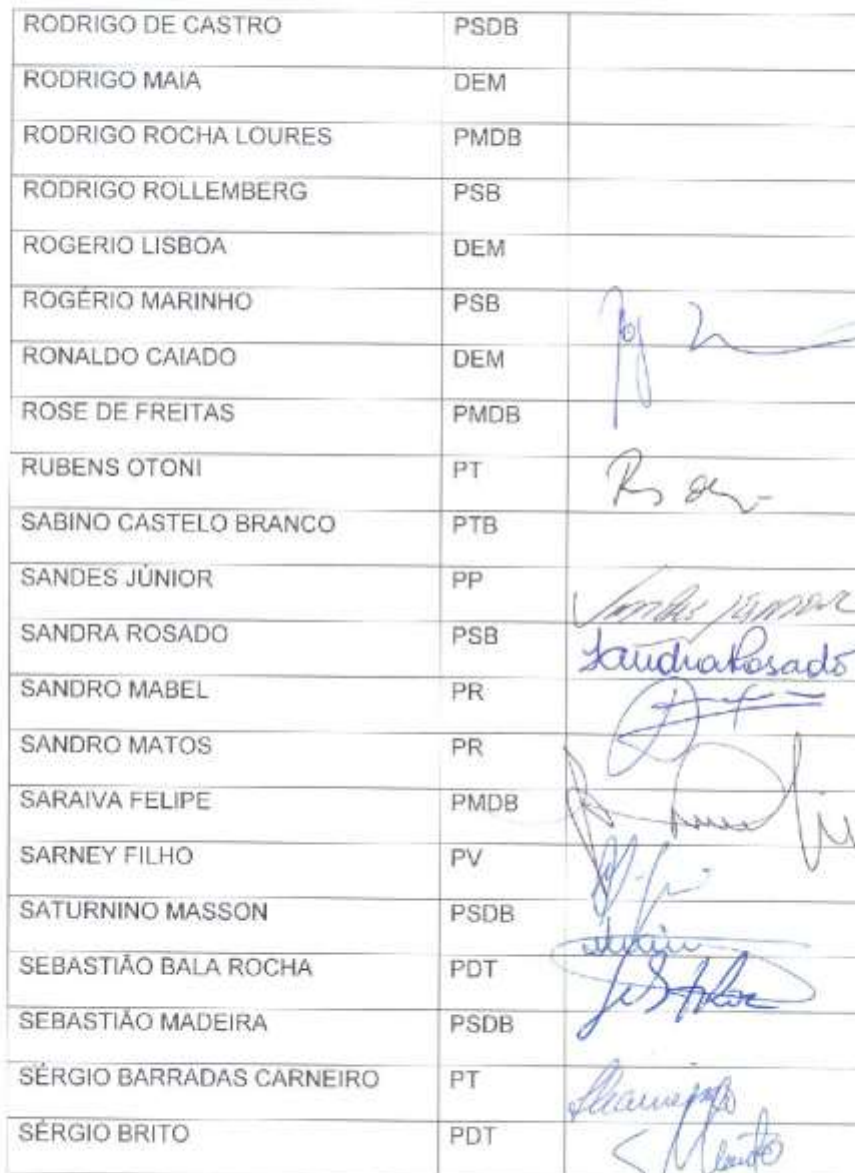 RODRIGO DE CASTRO PSDB
RODRIGO MAIA DEM
RODRIGO ROCHA LOURES PMDB
RODRIGO ROLLEMBERG PSB
ROGERIO LISBOA DEM
ROGÉRIO MARINHO PSB
RONALDO CAIADO DEM
ROSE DE FREITAS PMDB
RUBENS OTONI PT
SABINO CASTELO BRANCO PTB
SANDES JÚNIOR PP
SANDRA ROSADO PSB Sandra Rosado
SANDRO MABEL PR
SANDRO MATOS PR
SARAIVA FELIPE PMDB
SARNEY FILHO PV
SATURNINO MASSON PSDB
SEBASTIÃO BALA ROCHA PDT
SEBASTIÃO MADEIRA PSDB
SÉRGIO BARRADAS CARNEIRO PT
SÉRGIO BRITO PDT